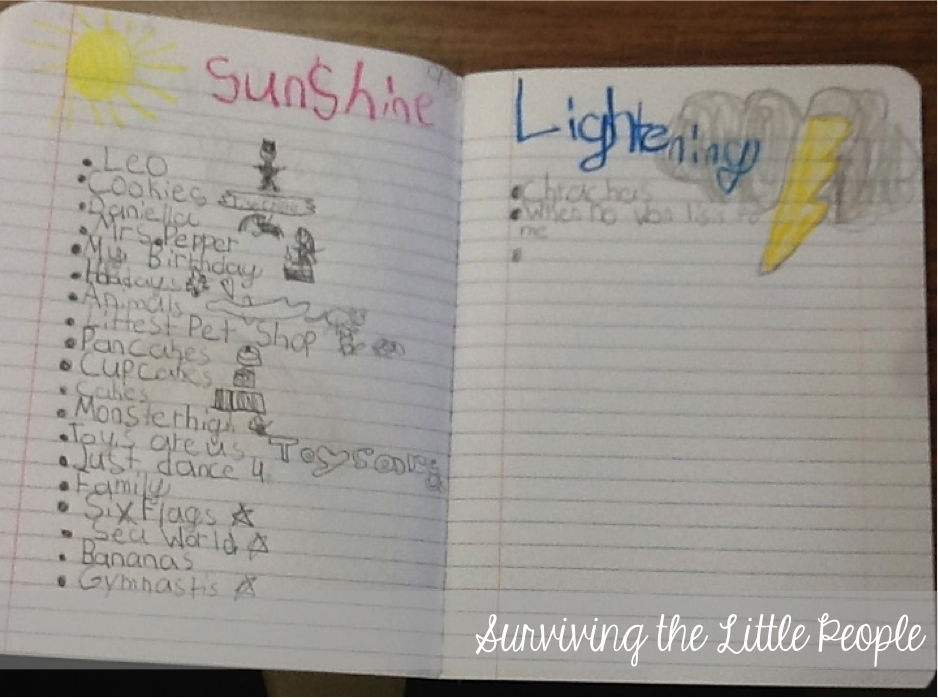 SunShine
• Leo
• Cookies
• Daniella
• Mrs. Pepper
• My Birthday
• Holidays
• Animals
• Littest Pet Shop
• Pancakes
• Cupcakes
• Cakes
• Monsterhigh
• Toys are us
• Just dance 4
• Family
• Six Flags
• Sea World
• Bananas
• Gymnastis
Lightening
•
• When no won
me
•
Surviving the Little People